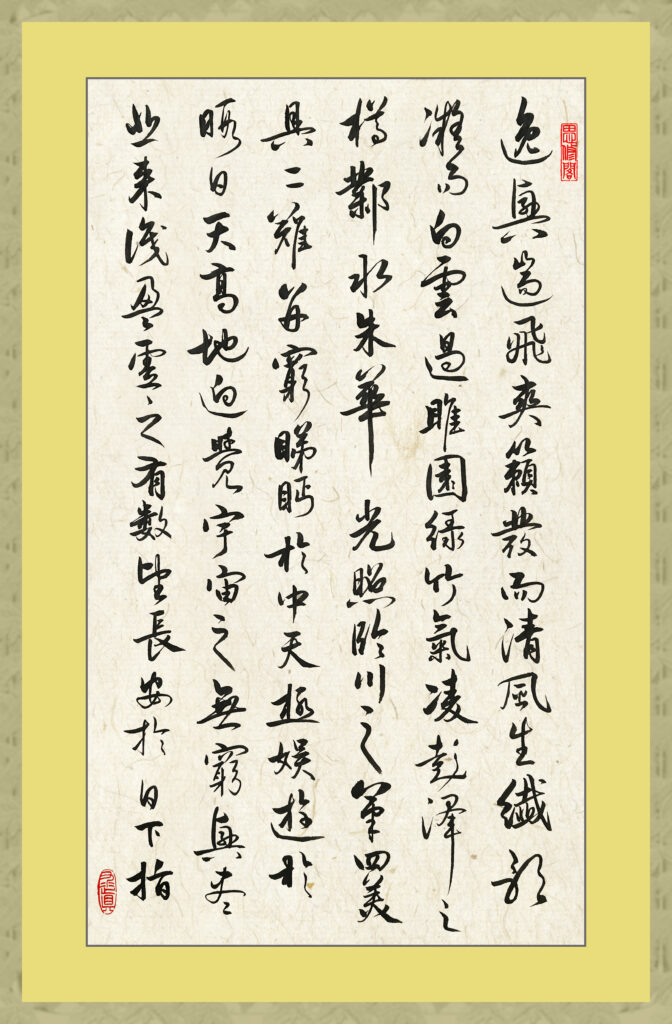 逸興遄飛爽籟發而清風生纖歌
凝而白雲遏睢園綠竹氣凌彭澤之
樽鄴水朱華光照臨川之筆四美
具二難并窮睇眄於中天極娛遊於
暇日天高地迥覺宇宙之無窮興盡
悲來識盈虛之有數望長安於日下指